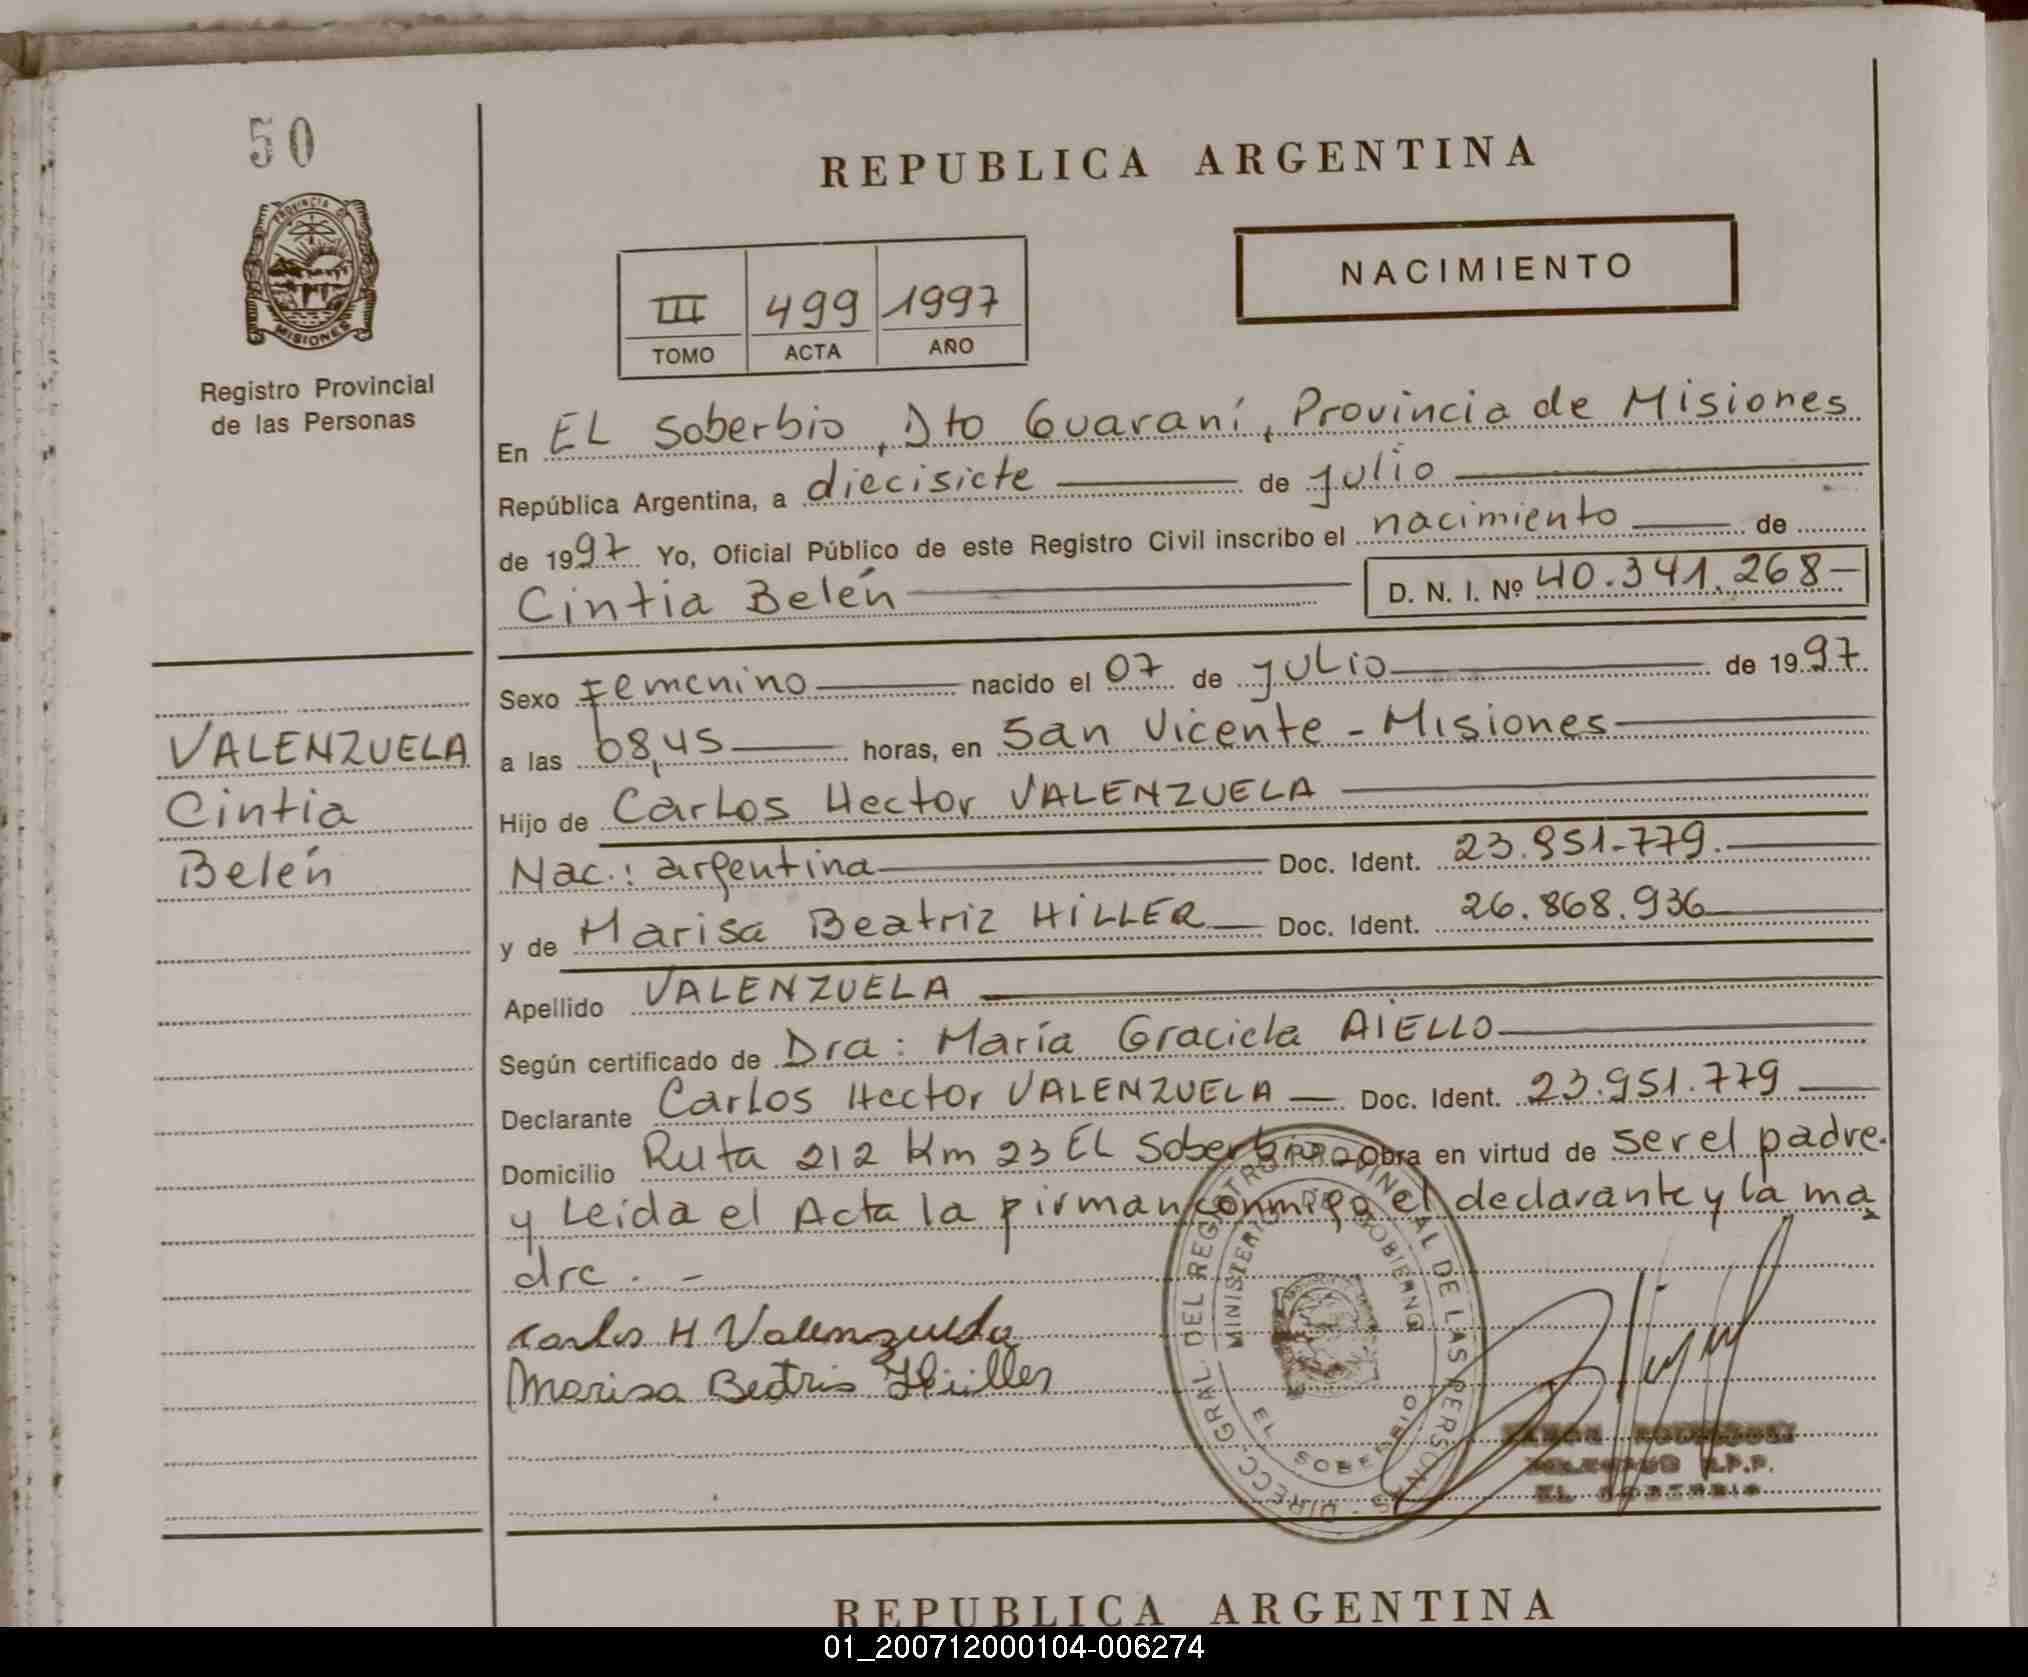 50
PROVINCIA DE
MISIONES
Registro Provincial
de las Personas
REPUBLICA ARGENTINA
NACIMIENTO
III 499 1997
TOMO ACTA AÑO
En EL Soberbio, Dto Guaraní, Provincia de Misiones
República Argentina, a diecisiete de julio
de 1997 Yo, Oficial Público de este Registro Civil inscribo el nacimiento de
Cintia Belén D. N. I. Nº 40.341.268-
Sexo Femenino nacido el 07 de julio de 1997
a las 08,45 horas, en San Vicente - Misiones
Hijo de Carlos Hector VALENZUELA
Nac.: argentina Doc. Ident. 23.951.779.
y de Marisa Beatriz HILLER Doc. Ident. 26.868.936
Apellido VALENZUELA
Según certificado de Dra: María Graciela AIELLO
Declarante Carlos Hector VALENZUELA Doc. Ident. 23.951.779
Domicilio Ruta 212 Km 23 EL Soberbio Obra en virtud de ser el padre.
y Leída el Acta la firman conmigo el declarante y la ma
dre. -
Carlos H Valenzuela
Marisa Beatris Hiller
VALENZUELA
Cintia
Belén
DIRECC. GRAL. DEL REGISTRO PROVINCIAL DE LAS PERSONAS
MINISTERIO DE GOBIERNO
EL SOBERBIO
R.P.P.
EL SOBERBIO
REPUBLICA ARGENTINA
01_200712000104-006274